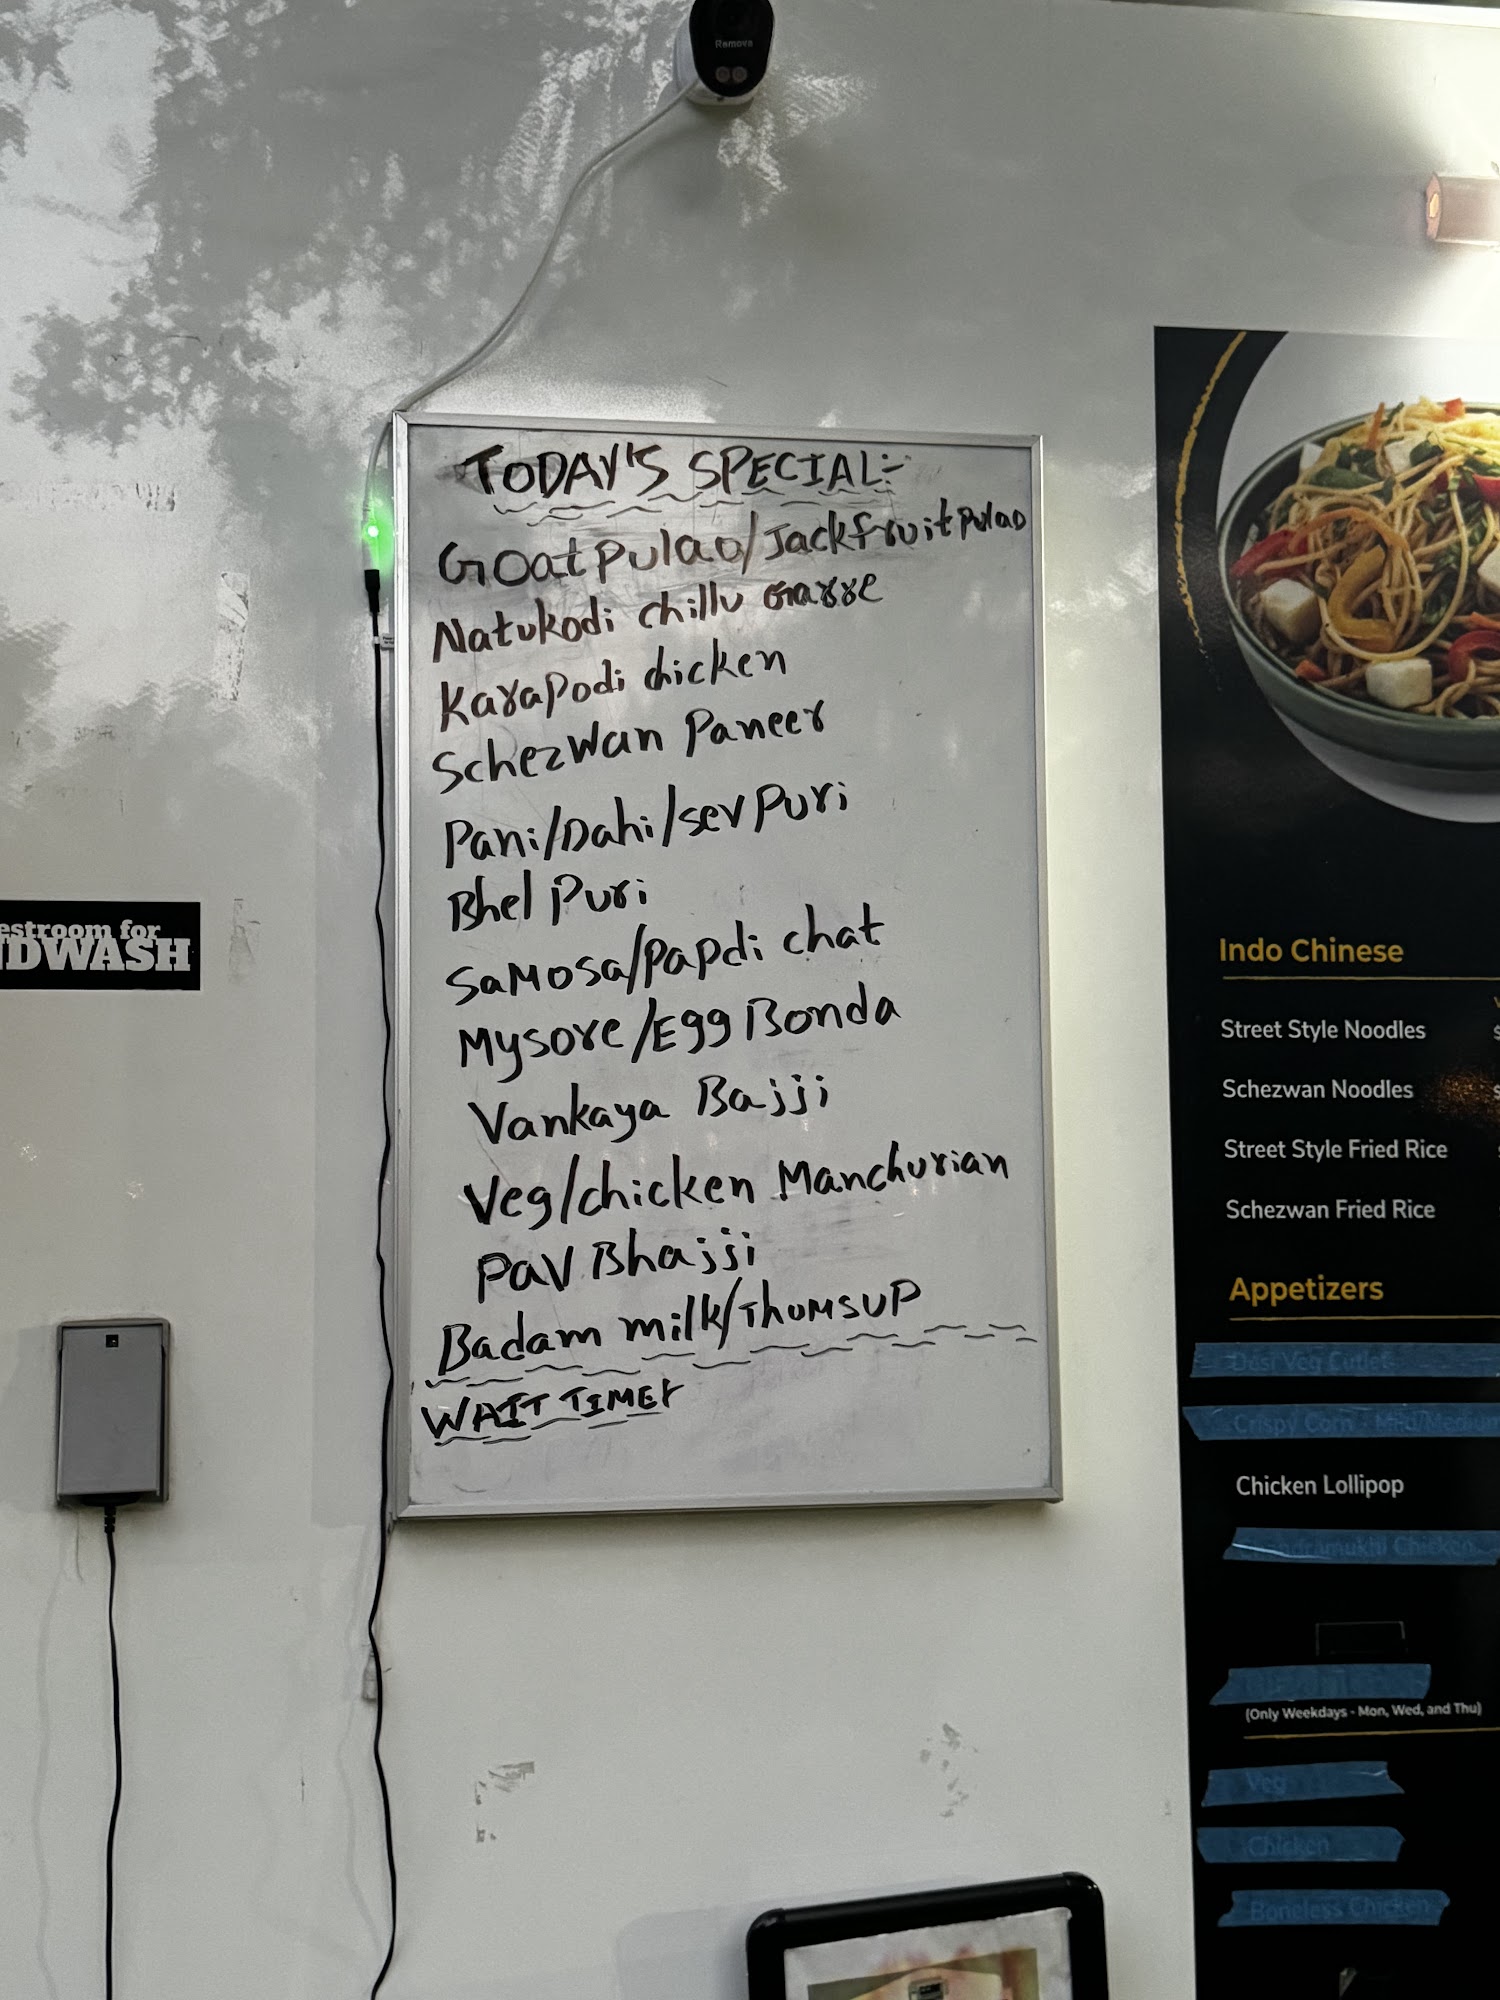 Remova
TODAY'S SPECIAL:-
Goat pulao/Jackfruit pulao
Natukodi chillu Garre
Karapodi chicken
Schezwan Paneer
Pani/Dahi/sev Puri
Bhel Puri
Samosa/papdi chat
Mysore/Egg Bonda
Vankaya Bajji
Veg/chicken Manchurian
Pav Bhajji
Badam milk/ThumsUP
WAIT TIME:
estroom for
DWASH
Indo Chinese
Street Style Noodles
Schezwan Noodles
Street Style Fried Rice
Schezwan Fried Rice
Appetizers
Desi Veg Cutlet
Crispy Corn - Mild/Medium
Chicken Lollipop
Chicken
(Only Weekdays - Mon, Wed, and Thu)
Veg
Chicken
Boneless Chicken